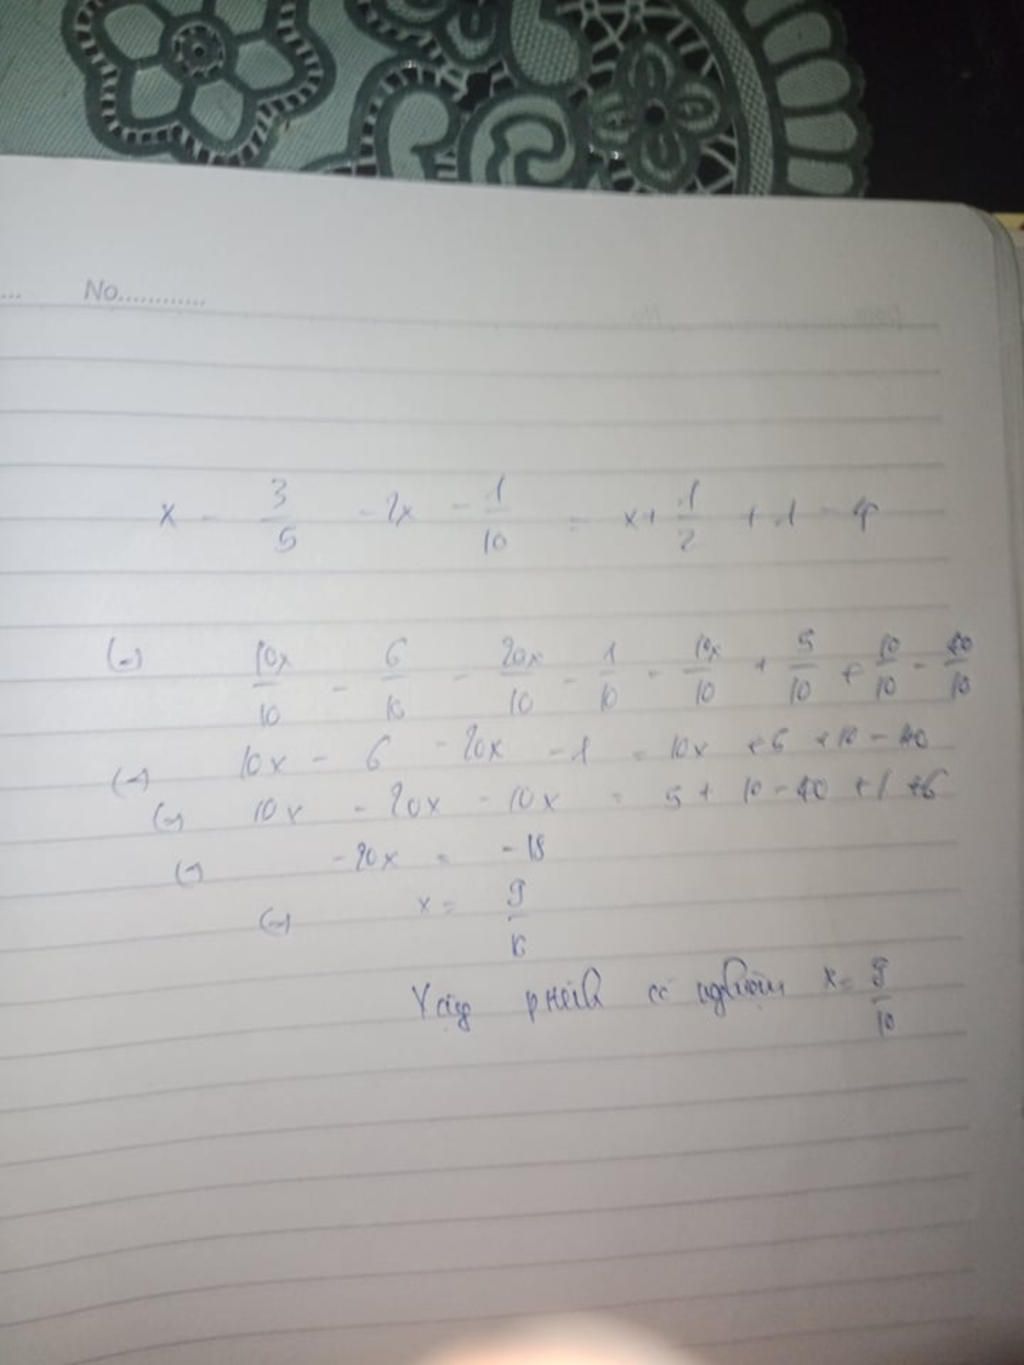 No............
x - 3/5 - 2x - 1/10 = x + 1/2 + 1 - 4
(=) 10x/10 - 6/10 - 20x/10 - 1/10 = 10x/10 + 5/10 + 10/10 - 40/10
(=) 10x - 6 - 20x - 1 = 10x + 5 + 10 - 40
(=) 10x - 20x - 10x = 5 + 10 - 40 + 1 + 6
(=) -20x = -18
(=) x = 9/10
Vậy có nghiệm x = 9/10